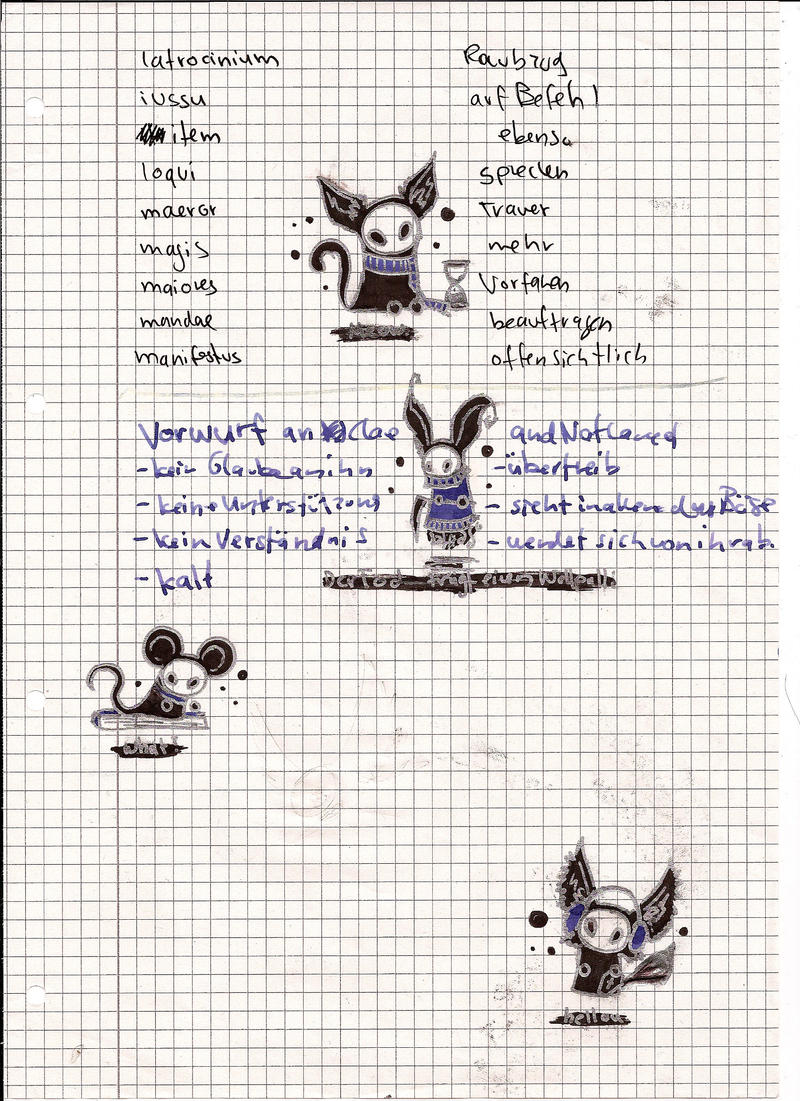 latrocinium Raubzug
iussu auf Befehl
item ebenso
loqui sprechen
maeror Trauer
magis mehr
maiores Vorfahren
mandae beauftragen
manifestus offensichtlich
Vorwurf an
- kein Glaube an ihn - übertreib
- keine Unterstützung - sieht in allem das Böse
- kein Verständnis - wendet sich von ihr ab.
- kalt
Der Tod trägt einen
what?